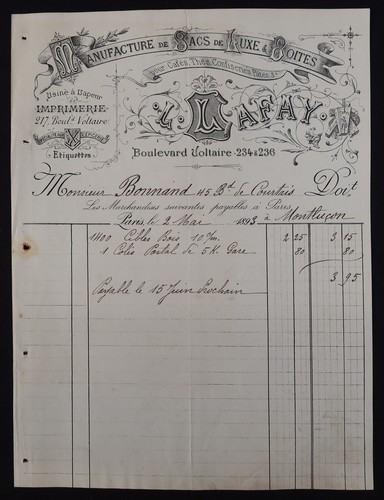 Manufacture de Sacs de Luxe & Boîtes
Pour Cafés, Thés, Confiseries, Pâtes &ª
Usine à Vapeur
IMPRIMERIE
217, Boulᵈ Voltaire
Etiquettes
L. LAFAY
Boulevard Voltaire 234 & 236
Monsieur Bonnand 45 Bᵈ de Courtais Doit
Les Marchandises suivantes payables à Paris
Paris, le 2 Mai 1893 à Montluçon
1400 Bois 2 25 3 15
1 Colis Postal de 5 K. Gare 80 80
3 95
Payable le 15 Juin Prochain